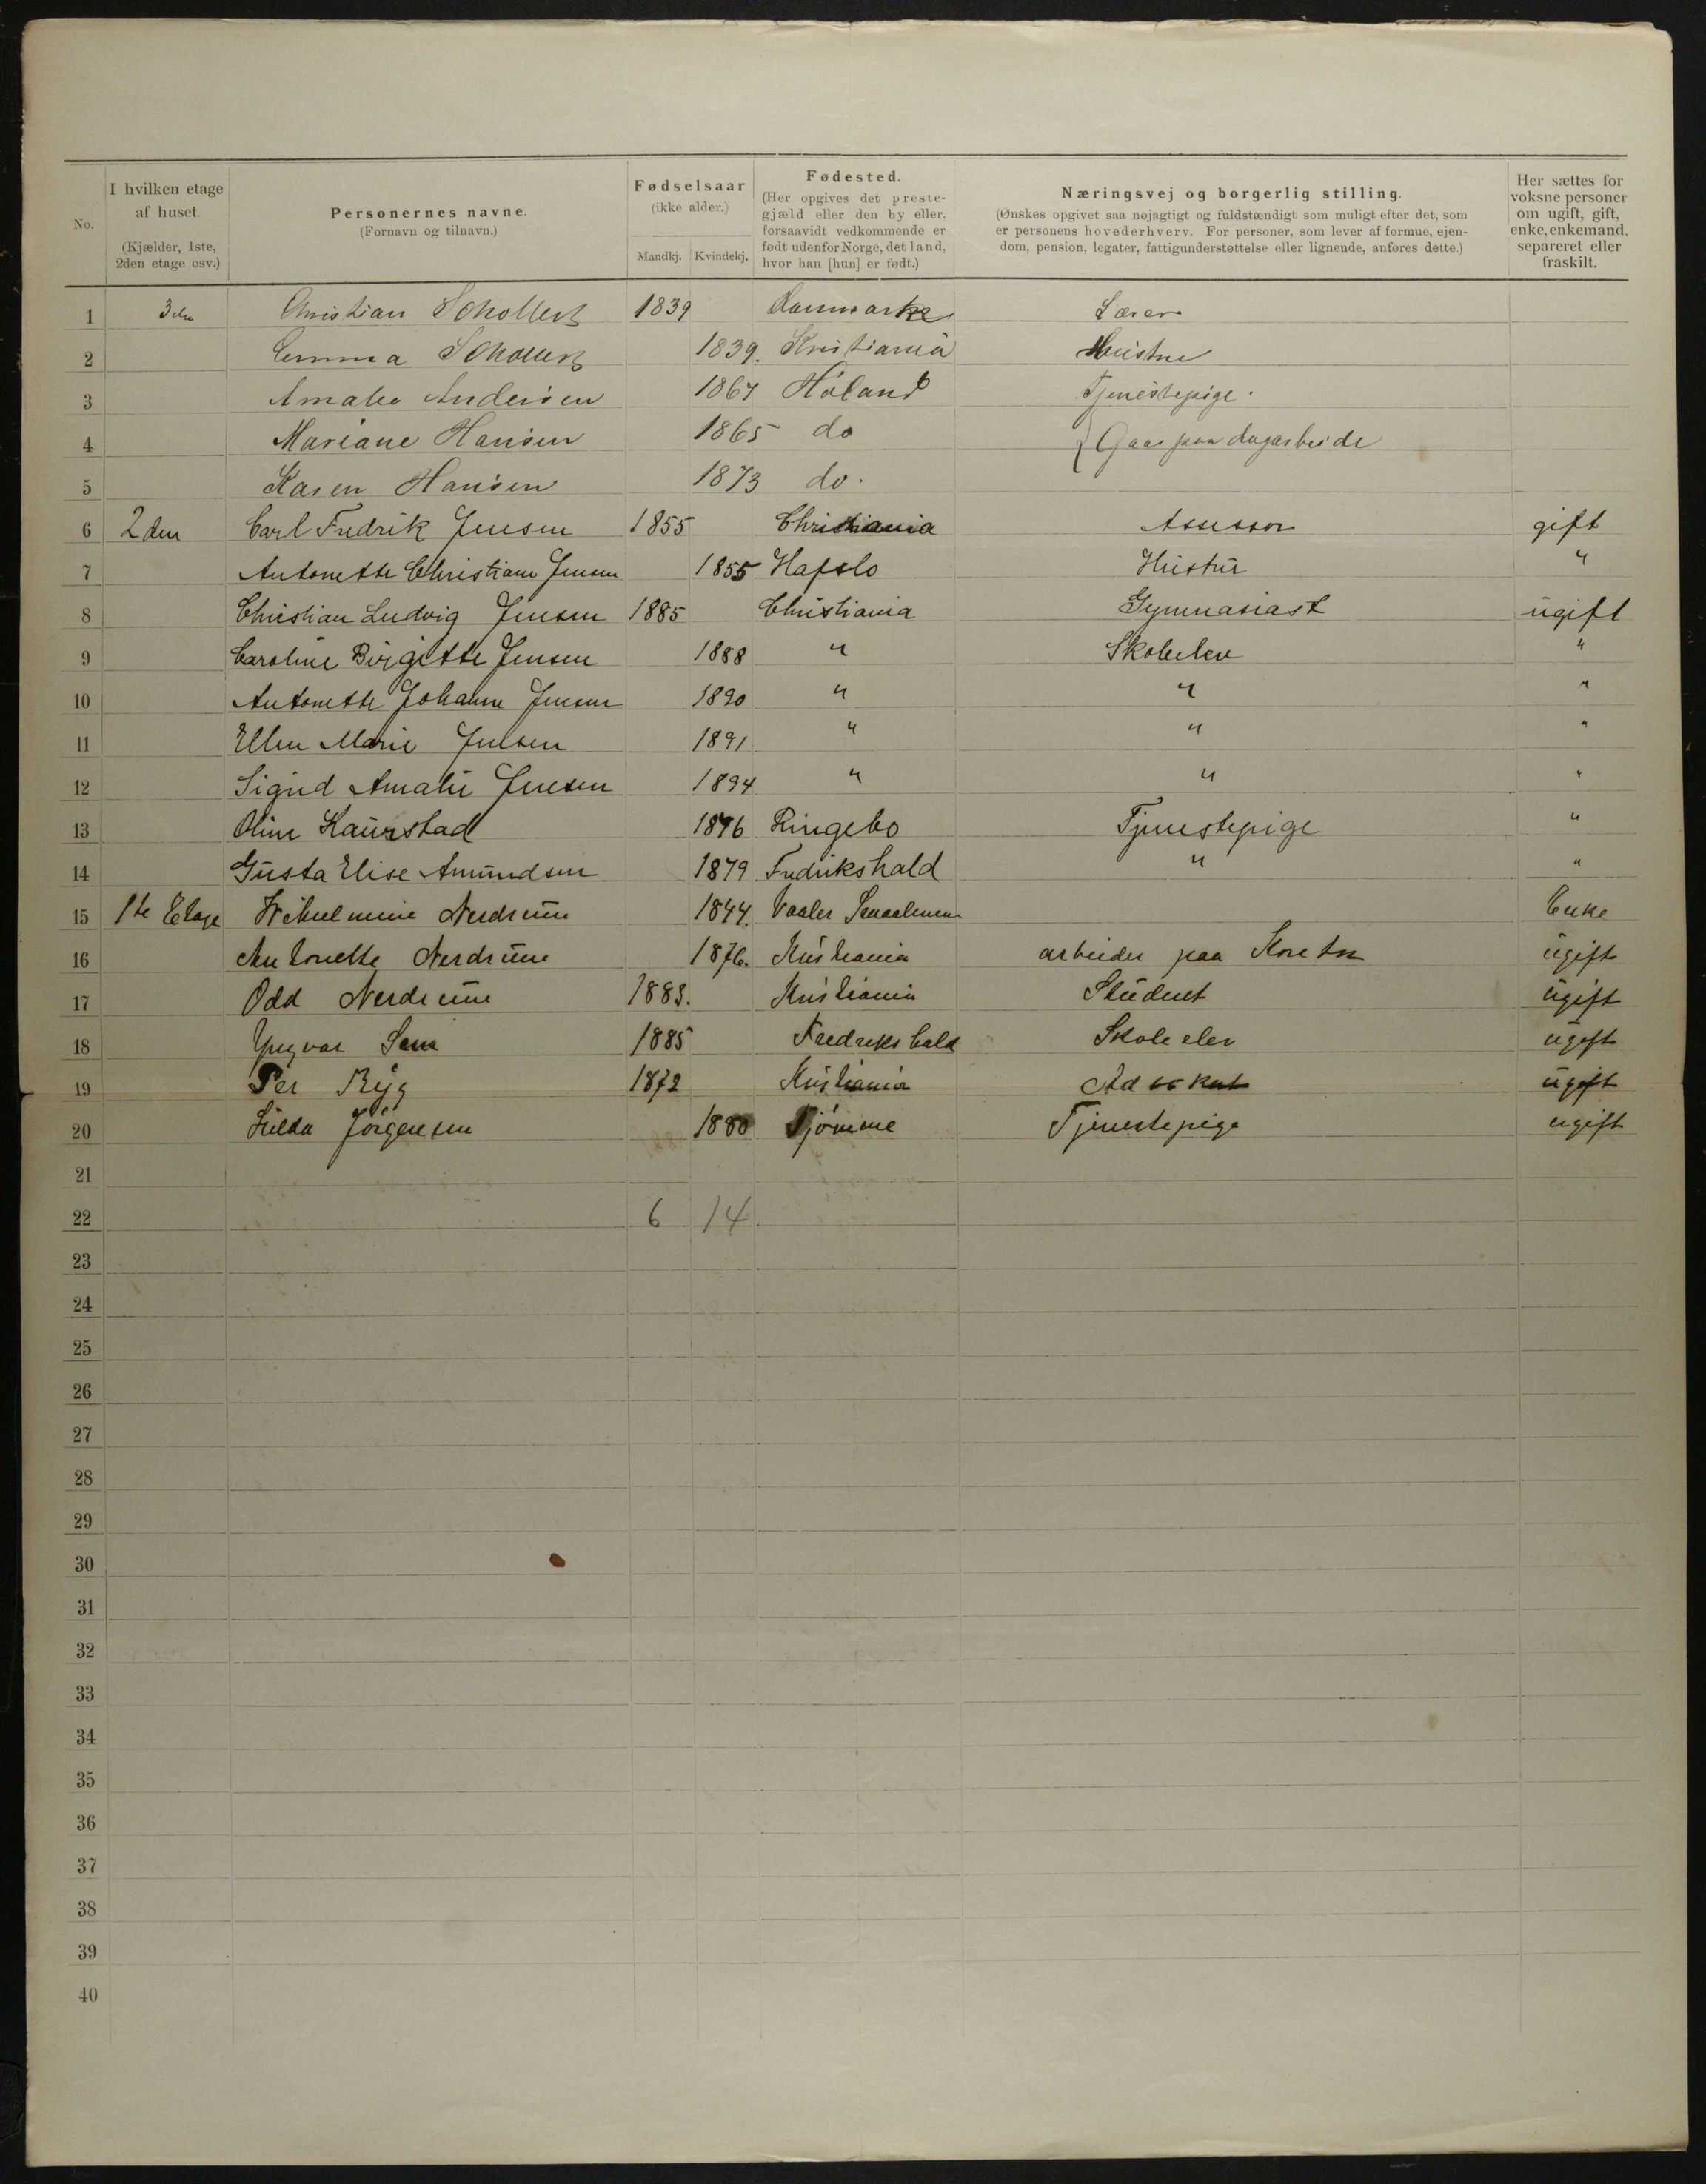 No.
I hvilken etage af huset. (Kjælder, 1ste, 2den etage osv.)
Personernes navne. (Fornavn og tilnavn.)
Fødselsaar (ikke alder.) Mandkj. Kvindekj.
Fødested. (Her opgives det prestegjæld eller den by eller, forsaavidt vedkommende er født udenfor Norge, det land, hvor han [hun] er født.)
Næringsvej og borgerlig stilling. (Ønskes opgivet saa nøjagtigt og fuldstændigt som muligt efter det, som er personens hovederhverv. For personer, som lever af formue, ejendom, pension, legater, fattigunderstøttelse eller lignende, anføres dette.)
Her sættes for voksne personer om ugift, gift, enke, enkemand, separeret eller fraskilt.
1 3die Christian Schollert 1839 Danmark Lærer
2 Emma Schollert 1839. Kristiania Hustru
3 Amalie Andersen 1867 Høland Tjenestepige.
4 Mariane Hansen 1865 do Gaar paa dagarbeide
5 Karen Hansen 1873 do.
6 2den Carl Fredrik Jensen 1855 Christiania Assessor gift
7 Antonette Christiane Jensen 1855 Hafslo Hustru "
8 Christian Ludvig Jensen 1885 Christiania Gymnasiast ugift
9 Caroline Birgitte Jensen 1888 " Skoleelev "
10 Antonette Johanne Jensen 1890 " " "
11 Ellen Marie Jensen 1891 " " "
12 Sigrid Amalie Jensen 1894 " " "
13 Oline Kaurstad 1876 Ringebo Tjenestepige "
14 Gusta Elise Amundsen 1879 Fredrikshald " "
15 1te Etage Wilhelmine Nerdrum 1844. Vaaler Smaalenene Enke
16 Antonette Nerdrum 1876. Kristiania arbeider paa Kontor ugift
17 Odd Nerdrum 1883. Kristiania Student ugift
18 Yngvar 1885 Fredrikshald Skoleelev ugift
19 Per Ryg 1872 Kristiania Advokat ugift
20 Hilda Jørgensen 1880 Tjømme Tjenestepige ugift
21
22 6 14
23
24
25
26
27
28
29
30
31
32
33
34
35
36
37
38
39
40